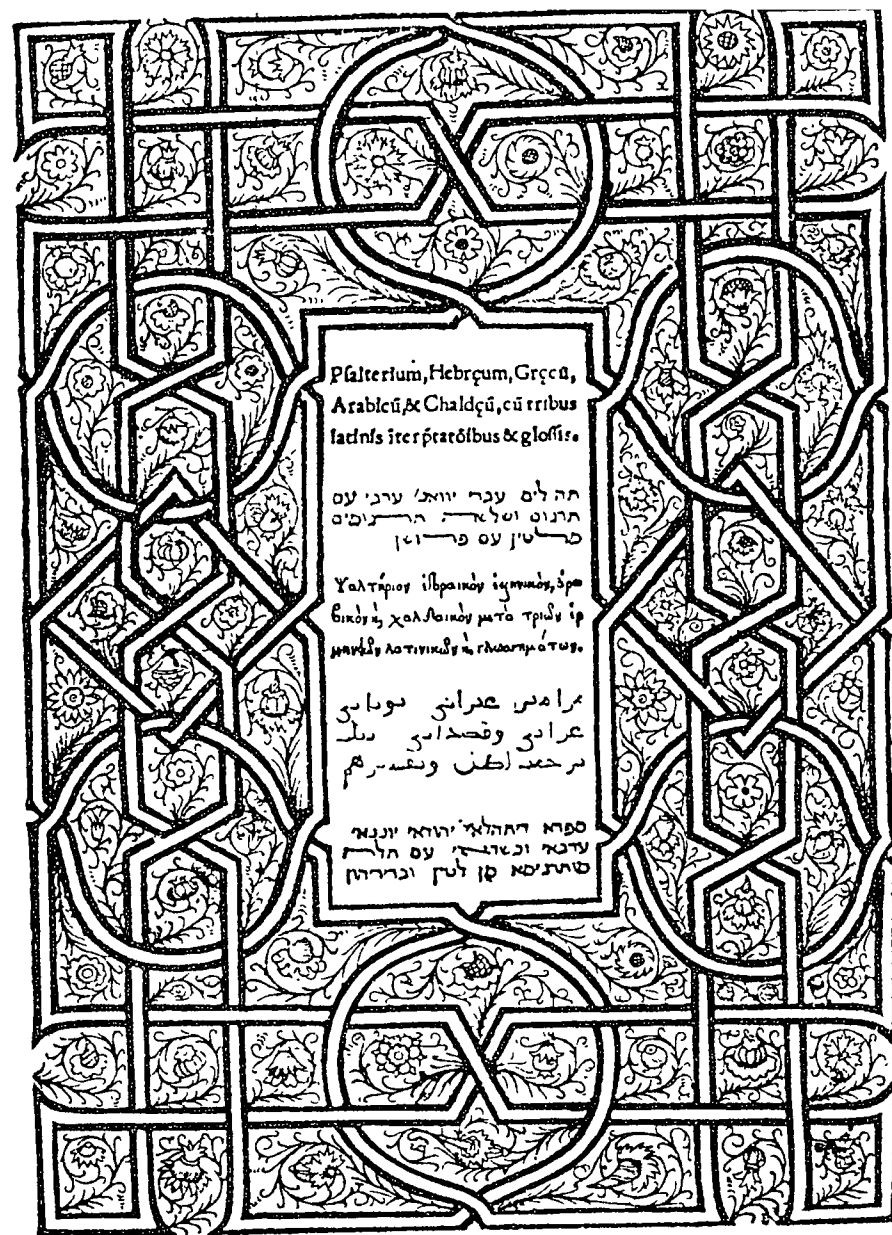 Pſalterium, Hebręum, Gręcū,
Arabicū, & Chaldęū, cū tribus
latinis īterp̄tatōibus & gloſſis.
תהלים עברי יוואני ערבי עם
תרגום ושלאשה תרגומים
מלטין עם פרושן
Ψαλτήριον ἑβραικὸν ἑλληνικὸν, ἀρα
βικὸν ϗ χαλδαικὸν μετὰ τριῶν ἑρ
μηνειῶν λατινικῶν ϗ γλωσημάτων.
مزامير عبراني يوناني
عربي وقصداني
لطني وتفسيرهم
ספרא דתהלאי יהודאי יוננאי
ערבאי וכשדאי עם תלת
מן לטין